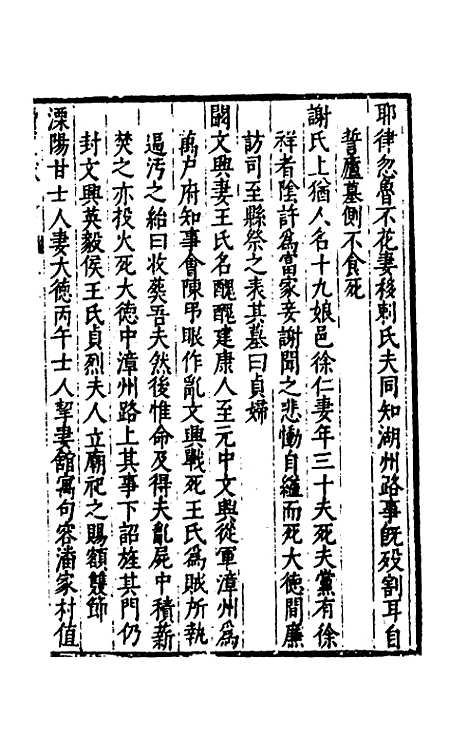 耶律忽魯不花妻移剌氏夫同知湖州路事旣歿割耳自
誓廬墓側不食死
謝氏上猶人名十九娘邑徐仁妻年三十夫死夫黨有徐
祥者陰許爲富家妾謝聞之悲慟自縊而死大德間廉
訪司至縣祭之表其墓曰貞婦
闞文興妻王氏名醜醜建康人至元中文興從軍漳州爲
萬户府知事會陳吊眼作亂文興戰死王氏爲賊所執
逼汚之紿曰收葬吾夫然後惟命及得夫亂屍中積薪
焚之亦投火死大德中漳州路上其事下詔旌其門仍
封文興英毅侯王氏貞烈夫人立廟祀之賜額雙節
溧陽甘士人妻大德丙午士人挈妻館寓句容潘家村值